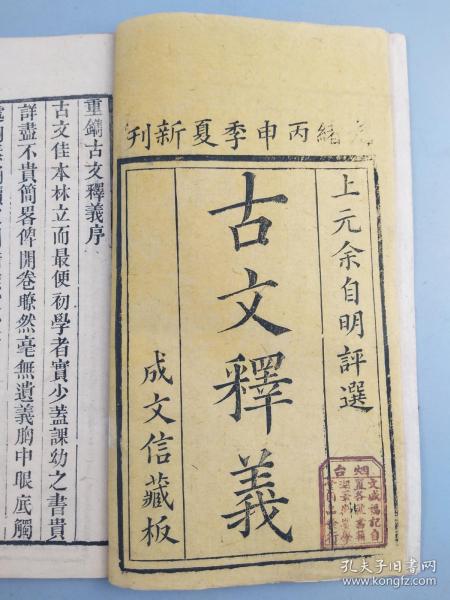 光緒丙申季夏新刊
上元余自明評選
古文釋義
成文信藏板
重鐫古文釋義序
古文佳本林立而最便初學者實少蓋課幼之書貴
詳盡不貴簡畧俾開卷瞭然毫無遺義胸中眼底觸
孔夫子旧书网
www.kongfz.com